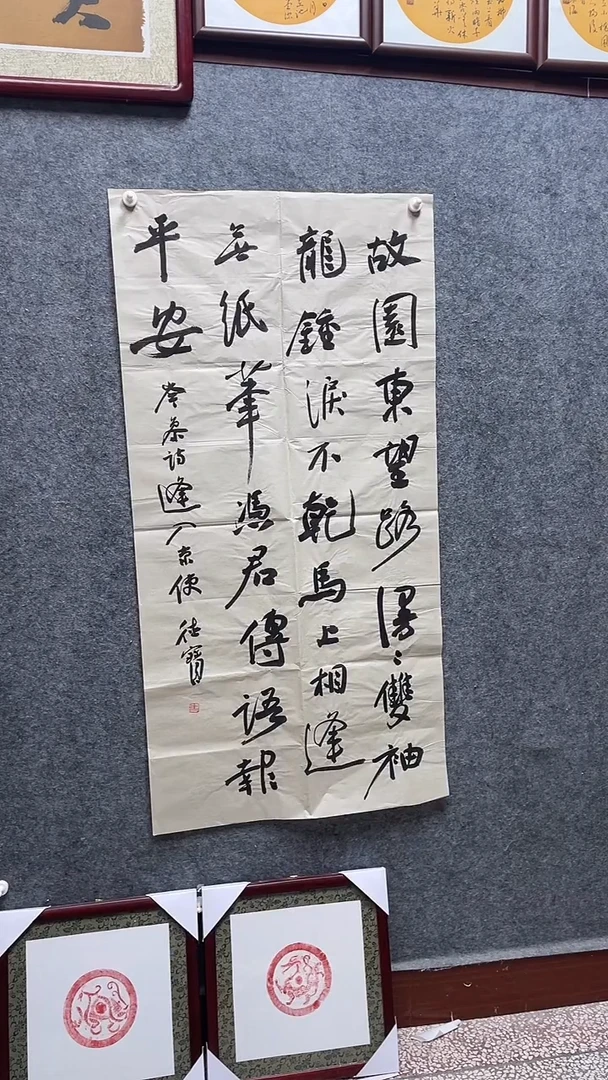 故園東望路漫々雙袖
龍鍾淚不乾馬上相逢
無紙筆憑君傳語報
平安
岑參詩逢入京使 德寶